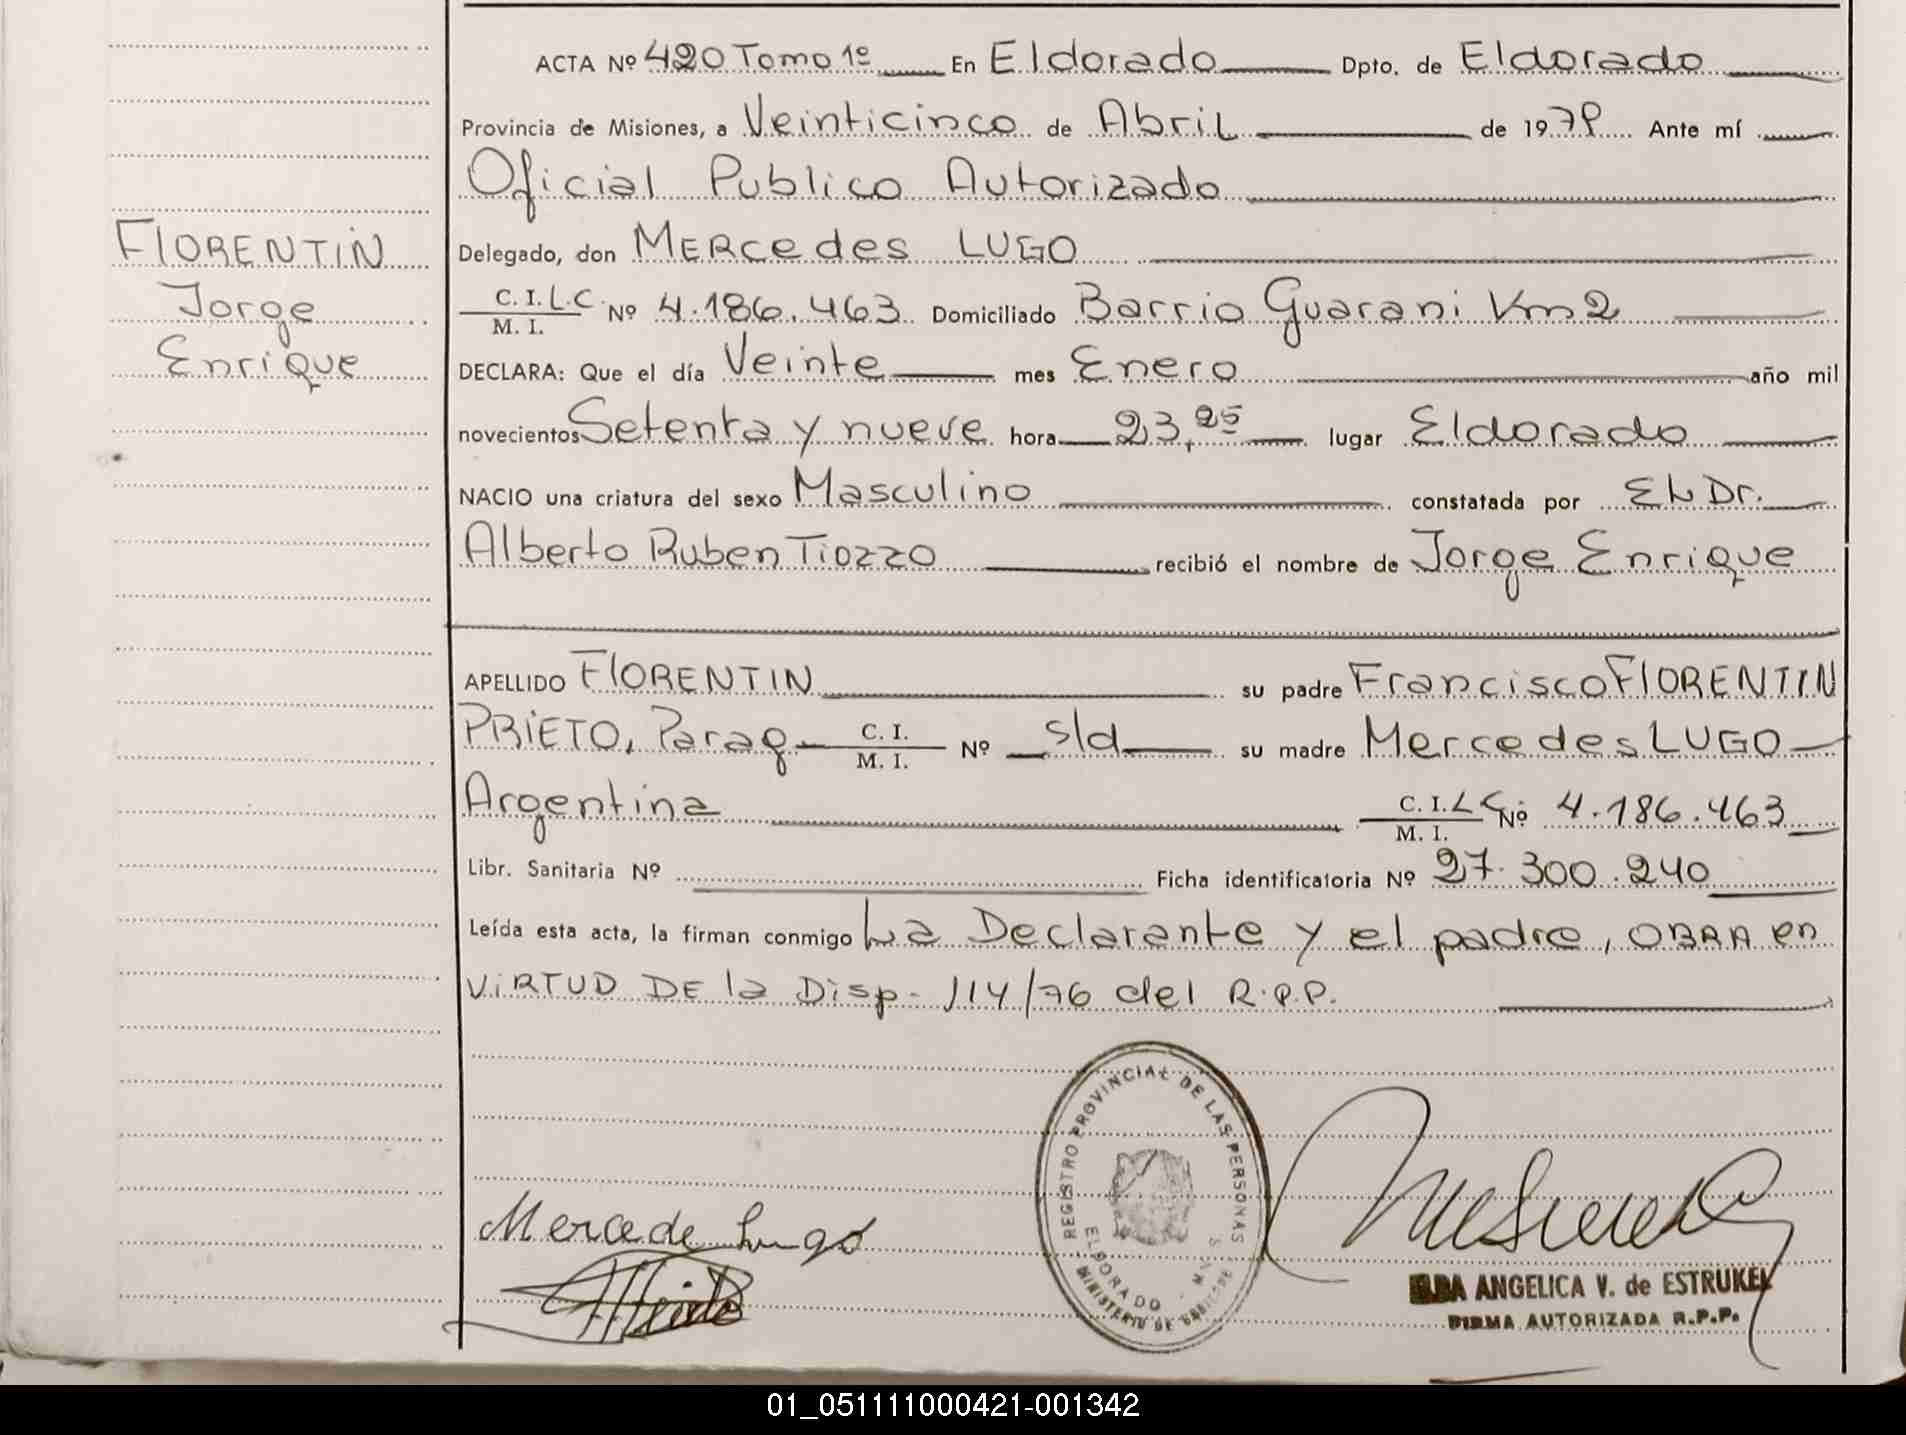 ACTA Nº 420 Tomo 1º En Eldorado Dpto. de Eldorado
Provincia de Misiones, a Veinticinco de Abril de 1979 Ante mí
Oficial Publico Autorizado
FlORENTIN
Delegado, don MERCedes LUGO
Jorge
C. I. L.C. Nº 4.186.463 Domiciliado Barrio Guarani Km2
M. I.
Enrique
DECLARA: Que el día Veinte mes Enero año mil
novecientos Setenta y nueve hora 23,25 lugar Eldorado
NACIO una criatura del sexo Masculino constatada por EL Dr.
Alberto Ruben Tiozzo recibió el nombre de Jorge Enrique
APELLIDO FlORENTIN su padre Francisco FlORENTIN
PRIETO, Parag- C. I. Nº s/d su madre Mercedes LUGO
M. I.
Argentina C. I. L C. Nº 4.186.463
M. I.
Libr. Sanitaria Nº Ficha identificatoria Nº 27.300.240
Leída esta acta, la firman conmigo La Declarante y el padre, OBRA en
VIRTUD DE la Disp- 114/76 del R.P.P.
REGISTRO PROVINCIAL DE LAS PERSONAS
ELDORADO - MNES.
MINISTERIO DE
Mercede Lugo
ANGELICA V. de ESTRUKEL
FIRMA AUTORIZADA R.P.P.
01_051111000421-001342